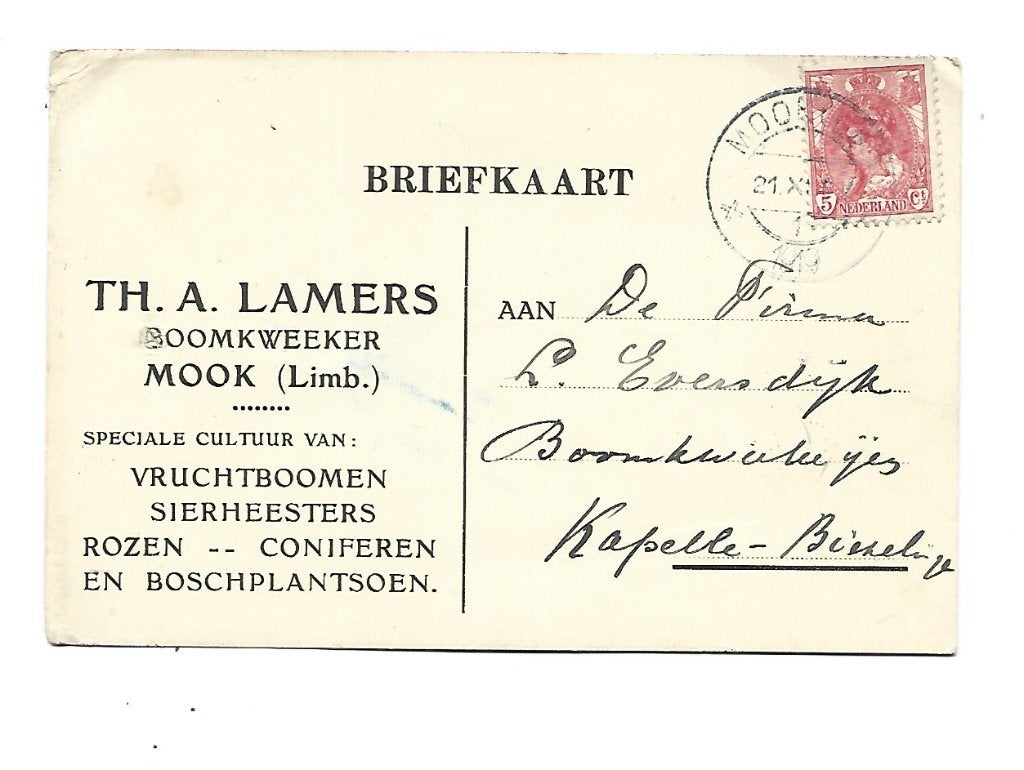 BRIEFKAART
MOOK
21.XI
1919
5 NEDERLAND Ct
TH. A. LAMERS
BOOMKWEEKER
MOOK (Limb.)
SPECIALE CULTUUR VAN:
VRUCHTBOOMEN
SIERHEESTERS
ROZEN -- CONIFEREN
EN BOSCHPLANTSOEN.
AAN De Firma
L. Eversdijk
Boomkweekerijen
Kapelle - Biezelinge